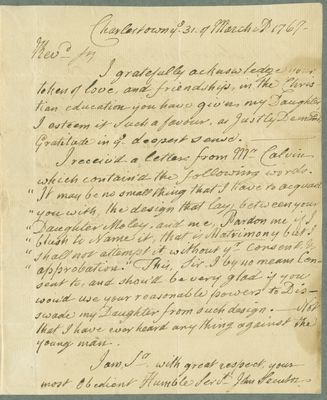 Charlestown yͤ 31. of March AD 1767-
Revᵈ Sʳ
I gratefully acknowledge your
token of love, and friendship, in the Chris
tian education you have given my Daughter
I esteem it Such a favour, as Justly Demands
Gratitude in yͤ deepest sense.
I receiv'd a letter from Mʳ Calvin
which contain'd the following words.
"It may be no small thing that I have to acquaint
"you with, the design that lay, between your
"Daughter Moley, and me, Pardon me if I
"blush to Name it, that is Matrimony but I
"shall not attempt it without yʳ Consent, &
"approbation." This, Sir, I by no means Con-
sent to, and shou'd be very glad if you
wou'd use your reasonable powers to Dis-
swade my Daughter from such design. — Not
that I have ever heard any thing against the
young man.
I am, Sʳ. with great respect, your
most Obedient Humble Servᵗ. John